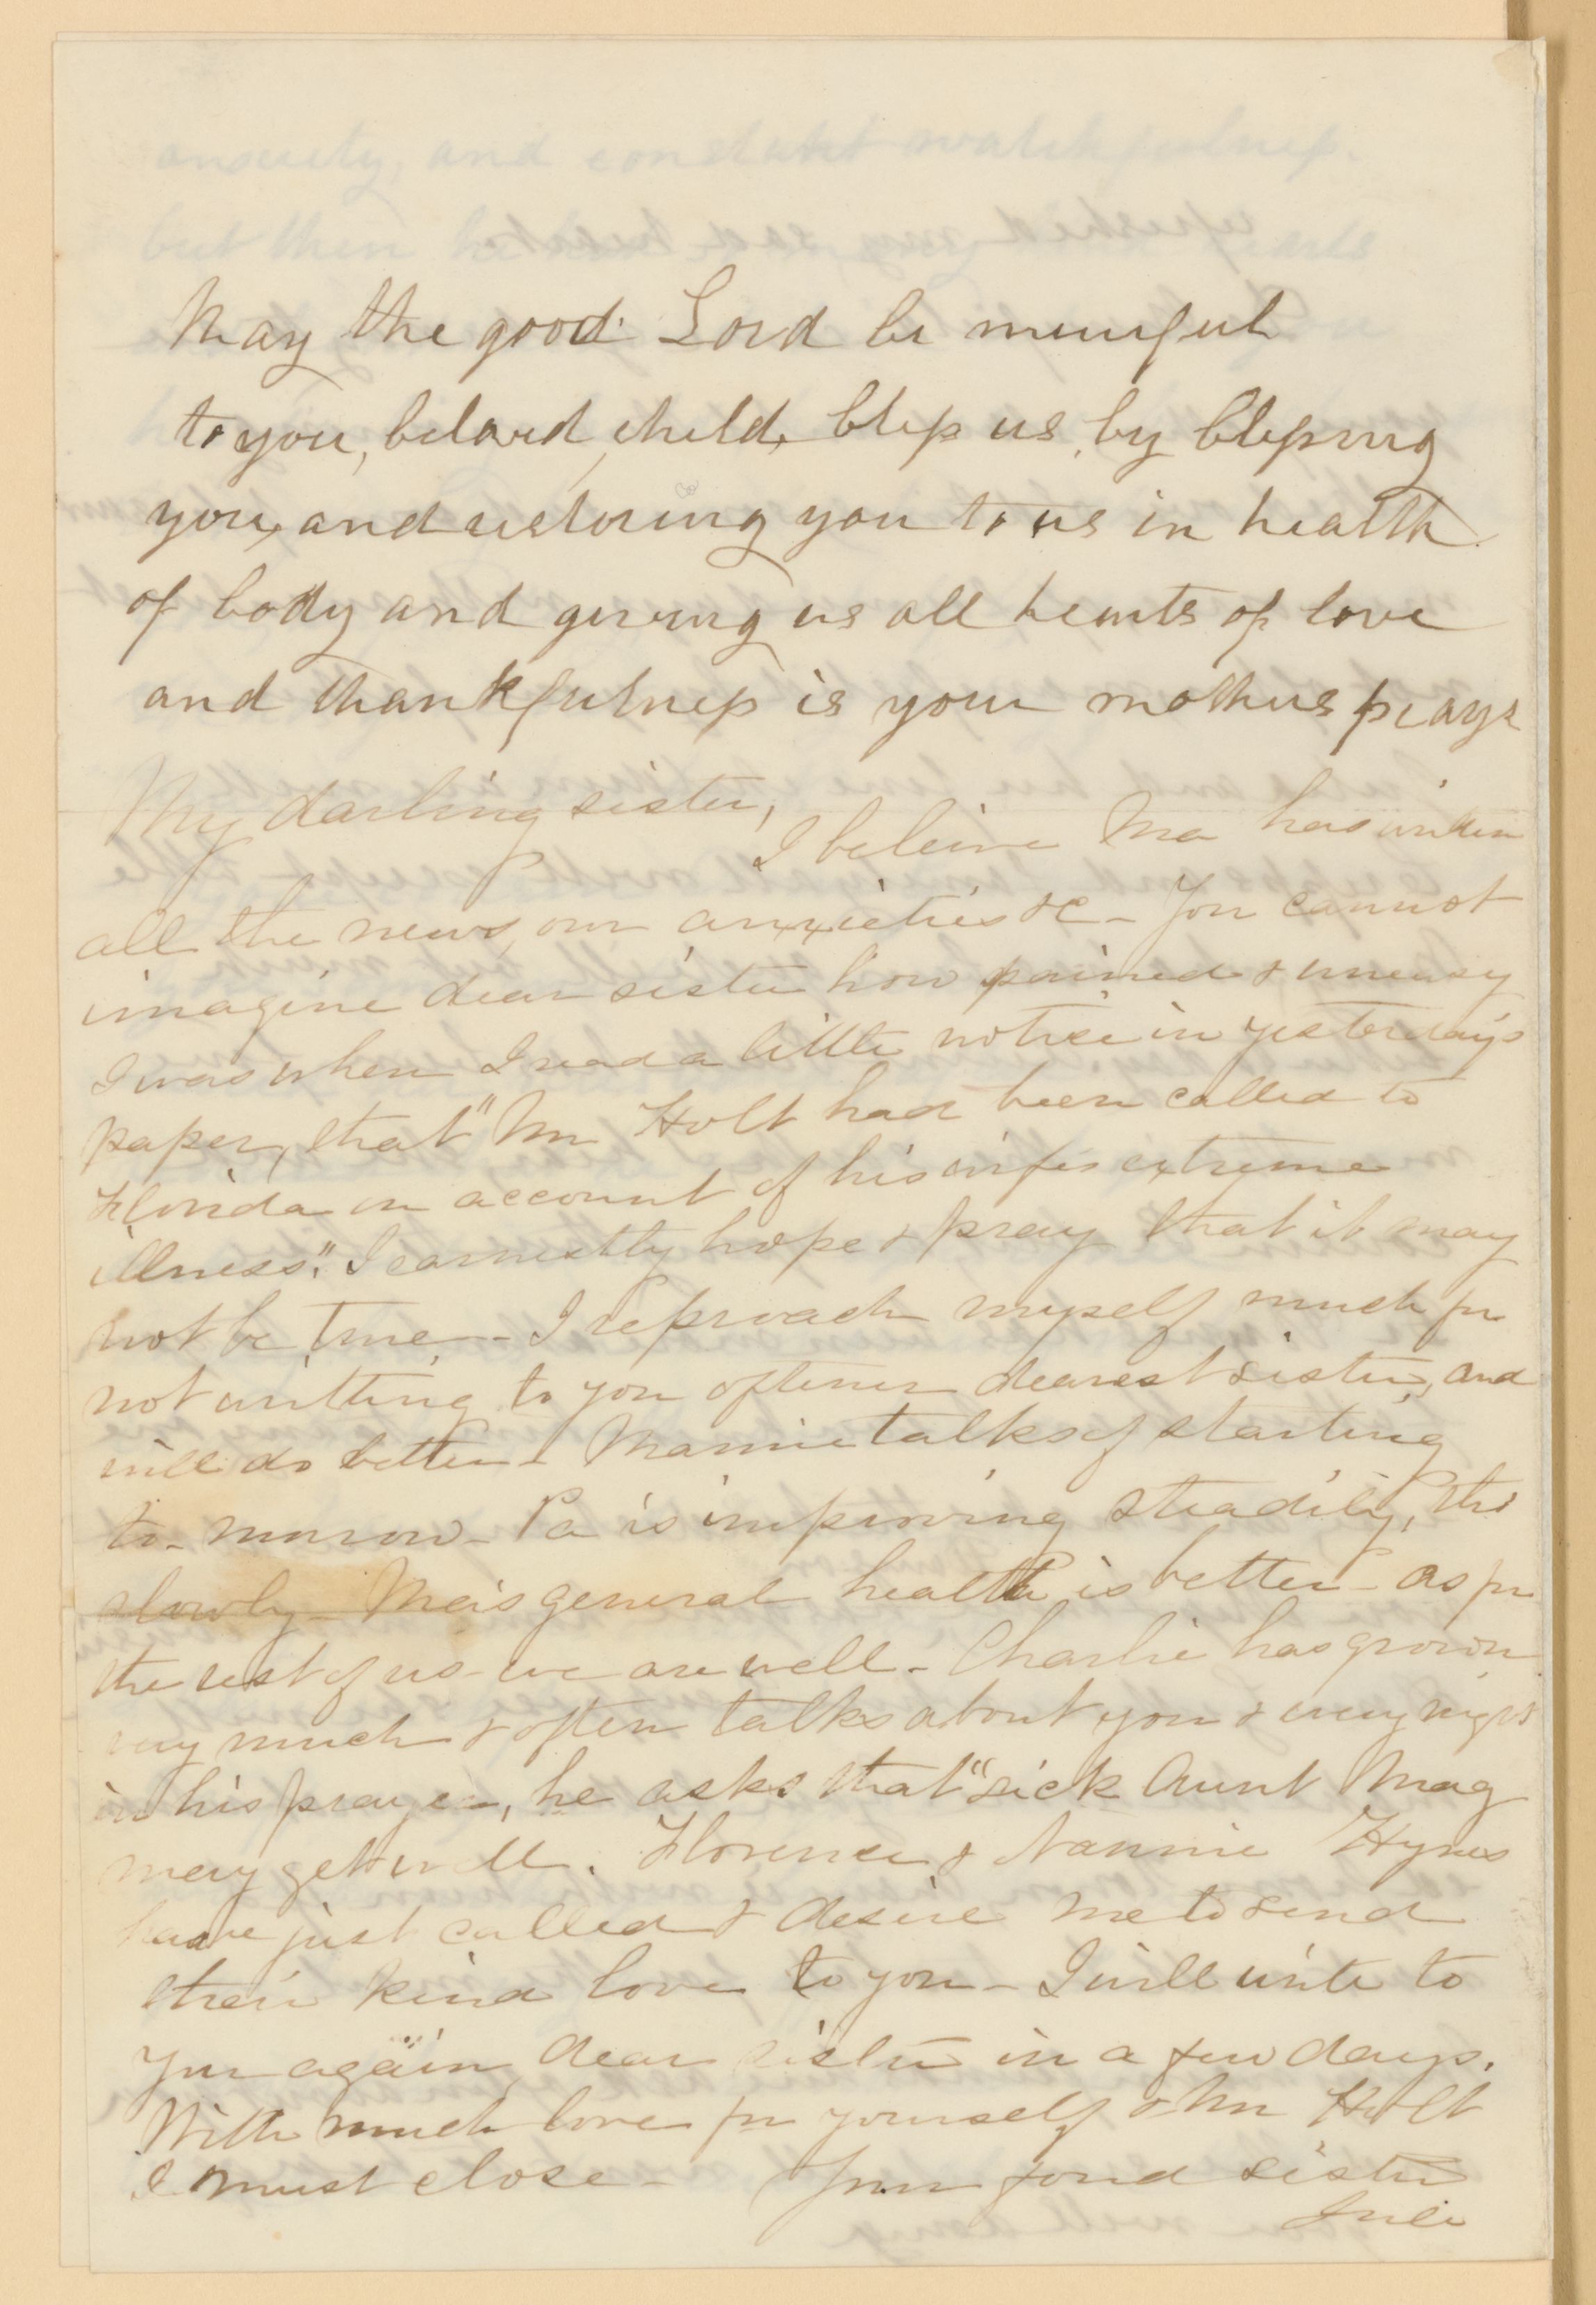 May the good Lord be merciful
to you, beloved, child, bless us, by blessing
you, and restoring you to us in health
of body and giving us all hearts of love
and thankfulness is your mothers prayr
My darling sister,
I beleive Ma has written
all the news, our anxieties &c - You cannot
imagine dear sister how pained & uneasy
I was when I read a little notice in yesterday's
paper, that "Mr Holt had been called to
Florida on account of his wifes extreme
illness". I earnestly hope & pray that it may
not be true - I reproach myself much for
not writting to you oftener dearest sister, and
will do better - Mannie talks of starting
to-morrow - Pa is improving steadily, tho
slowly - Ma's general health is better - as for
the rest of us - we are well - Charlie has grown
very much & often talks about you & every night
in his prayer -, he asks that "sick Aunt Mag
may get well. Florence & Nannie Hynes
have just called & desire me to send
their kind love to you - I will write to
you again dear sister in a few days.
With much love for yourself & Mr Holt
I must close - Your fond sister
Julie